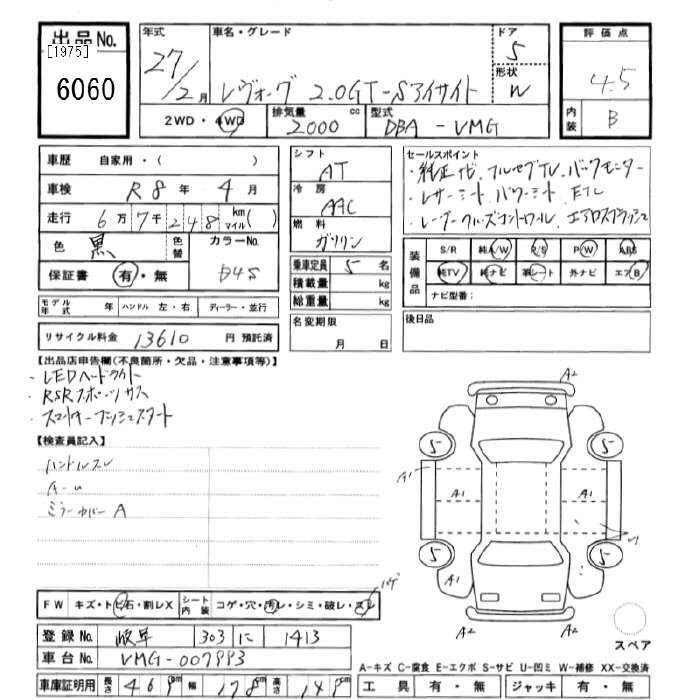 出品No. 年式 車名・グレード ドア 評価点
[1975] 27/2月 レヴォーグ 2.0GT-Sアイサイト 5 形状 W 4.5
6060
2WD・4WD 排気量 2000 cc 型式 DBA-VMG 内装 B
車歴 自家用・( ) シフト AT セールスポイント
・純正ナビ、フルセグTV、バックモニター
車検 R8年 4月 冷房 AAC
・レザーシート、パワーシート、ETC
走行 6万7千248 km マイル( ) 燃料 ガソリン
・レーダークルーズコントロール、エアロスプラッシュ
色 黒 色替 カラーNo. D4S
乗車定員 5名 装備品 S/R 純A/W R/S P/W ABS
保証書 有・無 積載量 kg 純TV 純ナビ 革シート 外ナビ エアB
総重量 kg ナビ型番:
モデル年式 年 ハンドル 左・右 ディーラー・並行
名変期限 月 日 後日品
リサイクル料金 13610 円 預託済
【出品店申告欄(不良箇所・欠品・注意事項等)】
・LEDヘッドライト
・RSRスポーツサス
・スマートキープッシュスタート
【検査員記入】
ハンドルスレ
A-U
ミラーカバーA
A2
5 5
A1 A1 A1
5 5
A1
A2 A2
FW キズ・ト ビ石・割レX シート内装 コゲ・穴・汚レ・シミ・破レ・スレ ハゲ
登録No. 岐阜 303 に 1413
車台No. VMG-007993
スペア
A-キズ C-腐食 E-エクボ S-サビ U-凹ミ W-補修 XX-交換済
車庫証明用 長さ 469cm 幅 178cm 高さ 149cm 工具 有・無 ジャッキ 有・無